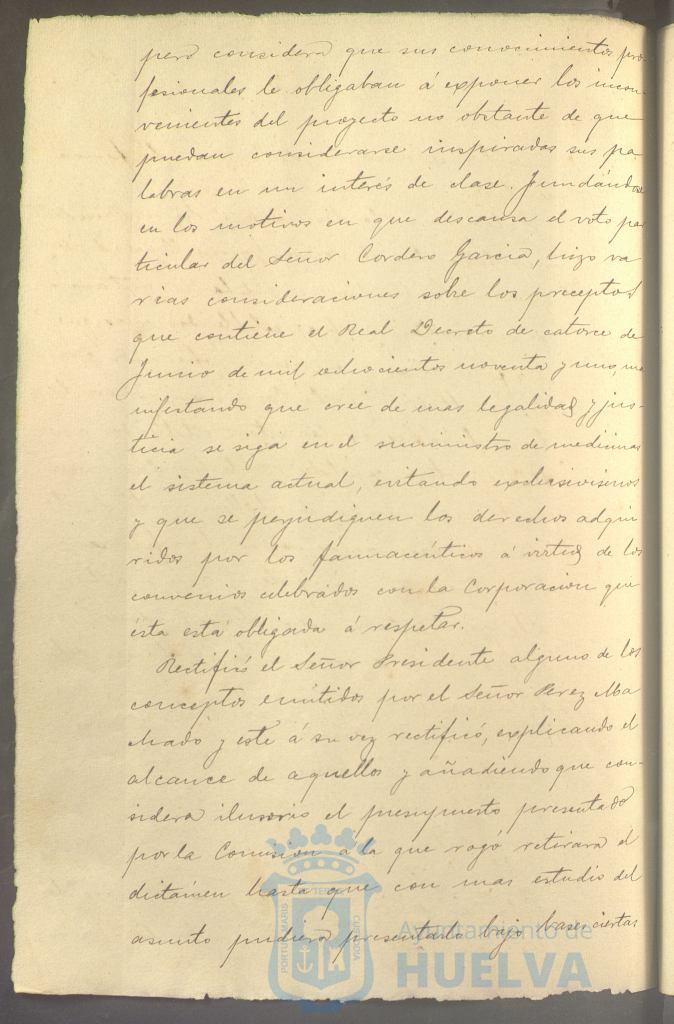 pero considera que sus conocimientos pro-
fesionales le obligaban á exponer los incon-
venientes del proyecto no obstante de que
puedan considerarse inspiradas sus pa-
labras en un interés de clase. Fundándose
en los motivos en que descansa el voto par
ticular del Señor Cordero Garcia, hizo va
rias consideraciones sobre los preceptos
que contiene el Real Decreto de catorce de
Junio de mil ochocientos noventa y uno, ma
nifestando que cree de mas legalidad y jus-
ticia se siga en el suministro de medicinas
el sistema actual, evitando exclusivismos
y que se perjudiquen los derechos adqui
ridos por los farmacéuticos á virtud de los
convenios celebrados con la Corporacion que
ésta está obligada á respetar.
Rectificó el Señor Presidente alguno de los
conceptos emitidos por el Señor Perez Ma
chado y este á su vez rectificó, explicando el
alcance de aquellos y añadiendo que con-
sidera ilusorio el presupuesto presentado
por la Comision á la que rogó retirara el
dictámen hasta que con mas estudio del
asunto pudiera presentarlo bajo bases ciertas
Ayuntamiento de
HUELVA
PORTUS MARIS
ET TERRAE
CUSTODIA